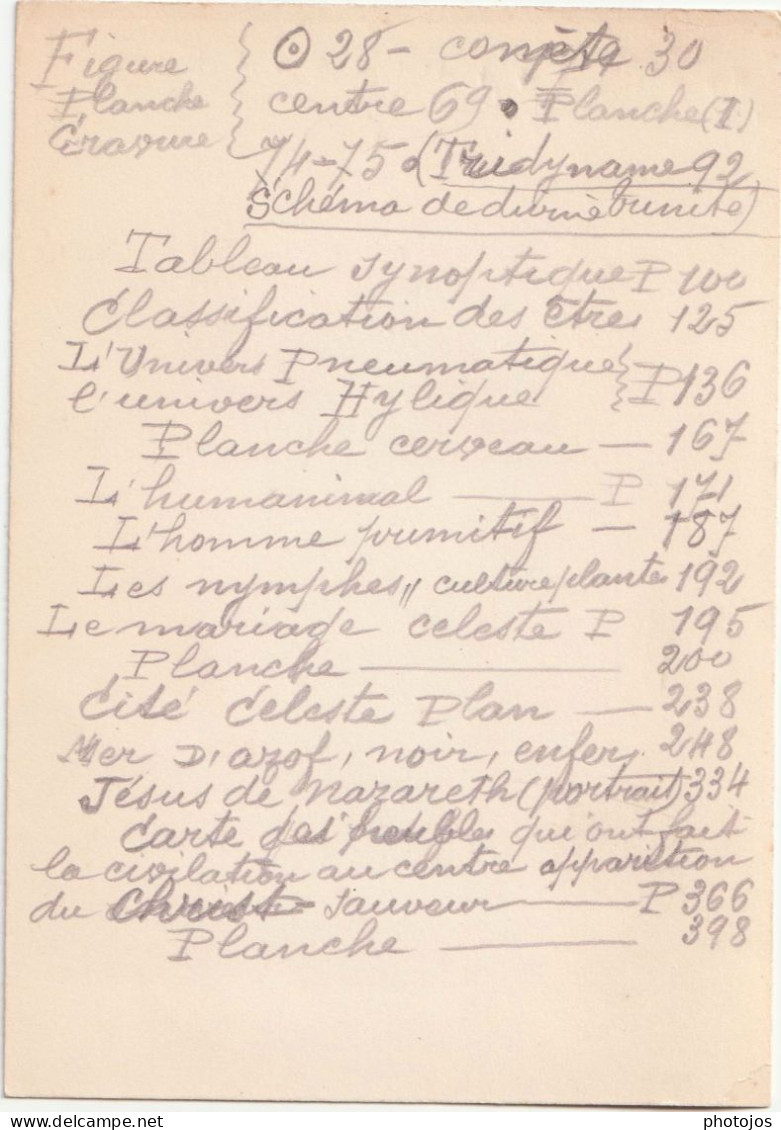 Figure { ⊙ 28 - comète 30
Planche { centre 69 • Planche (I)
Gravure { 74-75 • (Tridyname 92
Schéma de divine bunité)
Tableau synoptique P 100
Classification des êtres 125
L'Univers Pneumatique }
l'univers Hylique } P 136
Planche cerveau — 167
L'humanimal — P 171
L'homme primitif — 187
Les nymphes, culture plante 192
Le mariage celeste P 195
Planche — 200
Cité Céleste Plan — 238
Mer D'azof, noir, enfer 248
Jésus de Nazareth (portrait) 334
Carte des peuples qui ont fait
la civilation au centre apparition
du Christ - sauveur — P 366
Planche — 398
delcampe.net
photojos